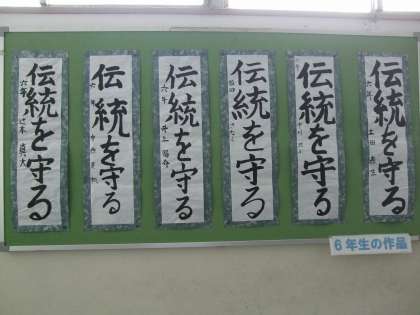 伝統を守る
伝統を守る
伝統を守る
伝統を守る
伝統を守る
伝統を守る
6年生の作品